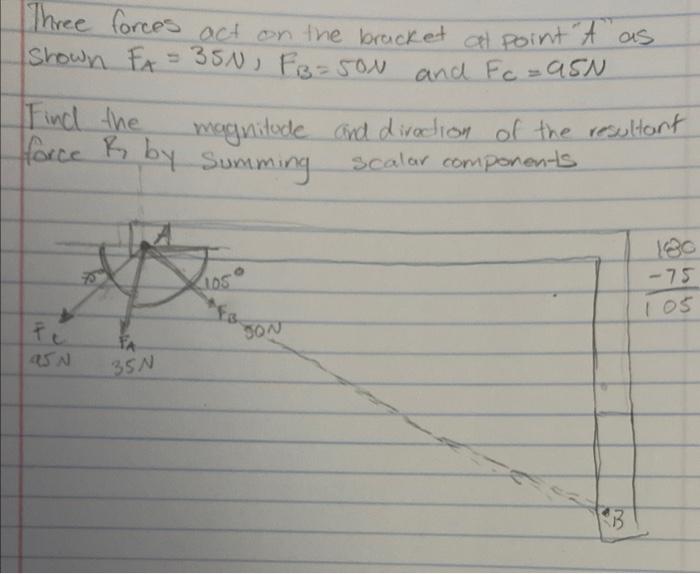 Three forces act on the bracket at point "A" as
shown FA = 35N, FB = 50N and FC = 95N
Find the magnitude and direction of the resultant
force R, by summing scalar components
A
180
-75
105
75°
105°
FB
50N
FC
95N
FA
35N
B